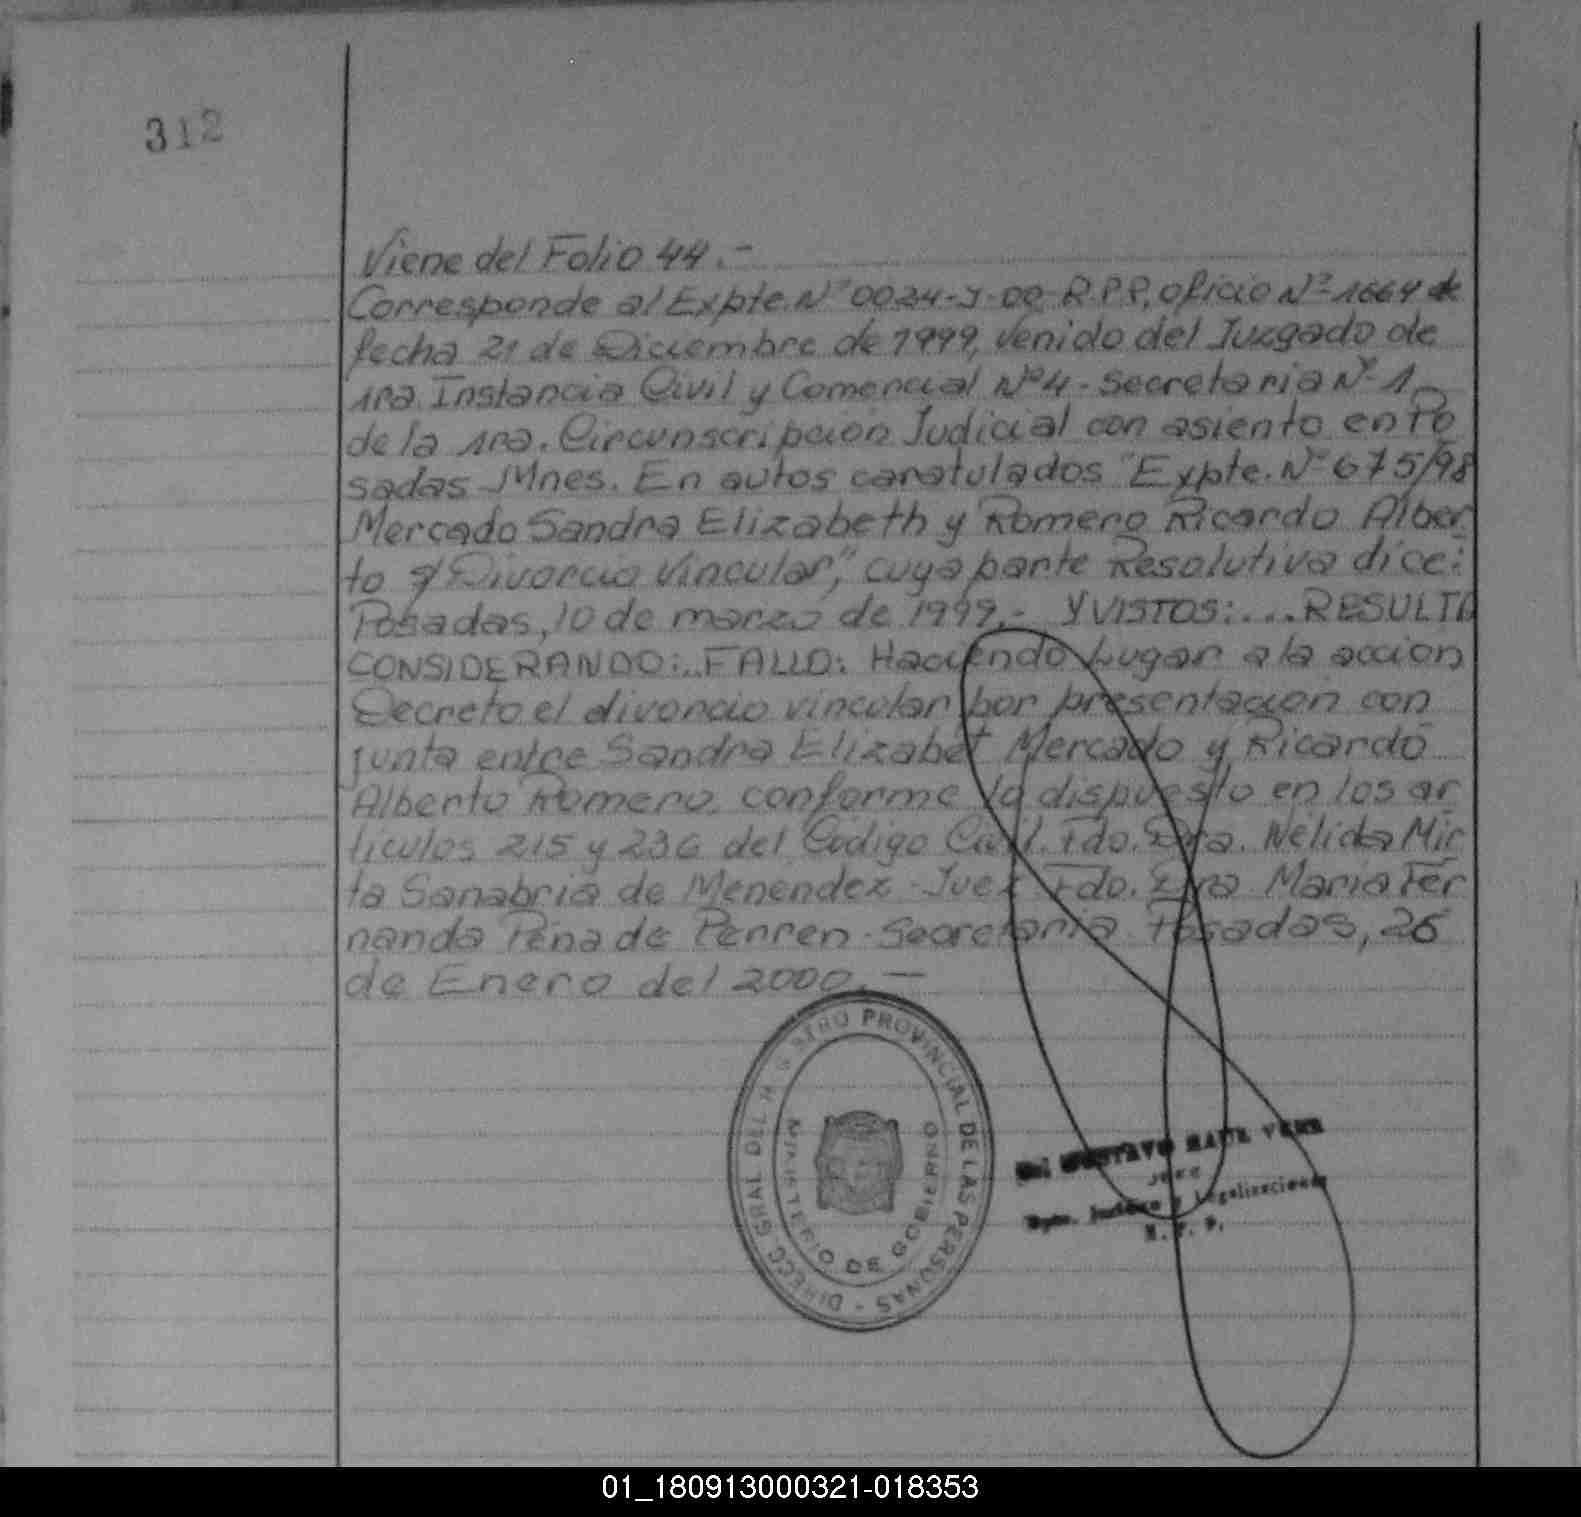 312
Viene del Folio 44.-
Corresponde al Expte. Nº 0024-J-00-R.P.P, oficio Nº 1664 de
fecha 21 de Diciembre de 1999, venido del Juzgado de
1ra Instancia Civil y Comercial Nº 4 - Secretaria Nº 1
de la 1ra. Circunscripción Judicial con asiento en Po
sadas Mnes. En autos caratulados "Expte. Nº 675/98
Mercado Sandra Elizabeth y Romero Ricardo Alber
to s/ Divorcio Vincular," cuya parte Resolutiva dice:
Posadas, 10 de marzo de 1999.- Y VISTOS:... RESULTA
CONSIDERANDO:... FALLO: Haciendo lugar a la acción
Decreto el divorcio vincular por presentación con
junta entre Sandra Elizabet Mercado y Ricardo
Alberto Romero. conforme lo dispuesto en los ar
ticulos 215 y 236 del Código Civil. Fdo. Dra. Nélida Mir
ta Sanabria de Menendez - Juez Fdo. Dra Maria Fer
nanda Pena de Perren - Secretaria Posadas, 26
de Enero del 2000. —
DIRECC GRAL DEL REGISTRO PROVINCIAL DE LAS PERSONAS -
MINISTERIO DE GOBIERNO
GUSTAVO RAUL VERA
JEFE
Dpto. Jurídico y Legalizaciones
R. P. P.
01_180913000321-018353